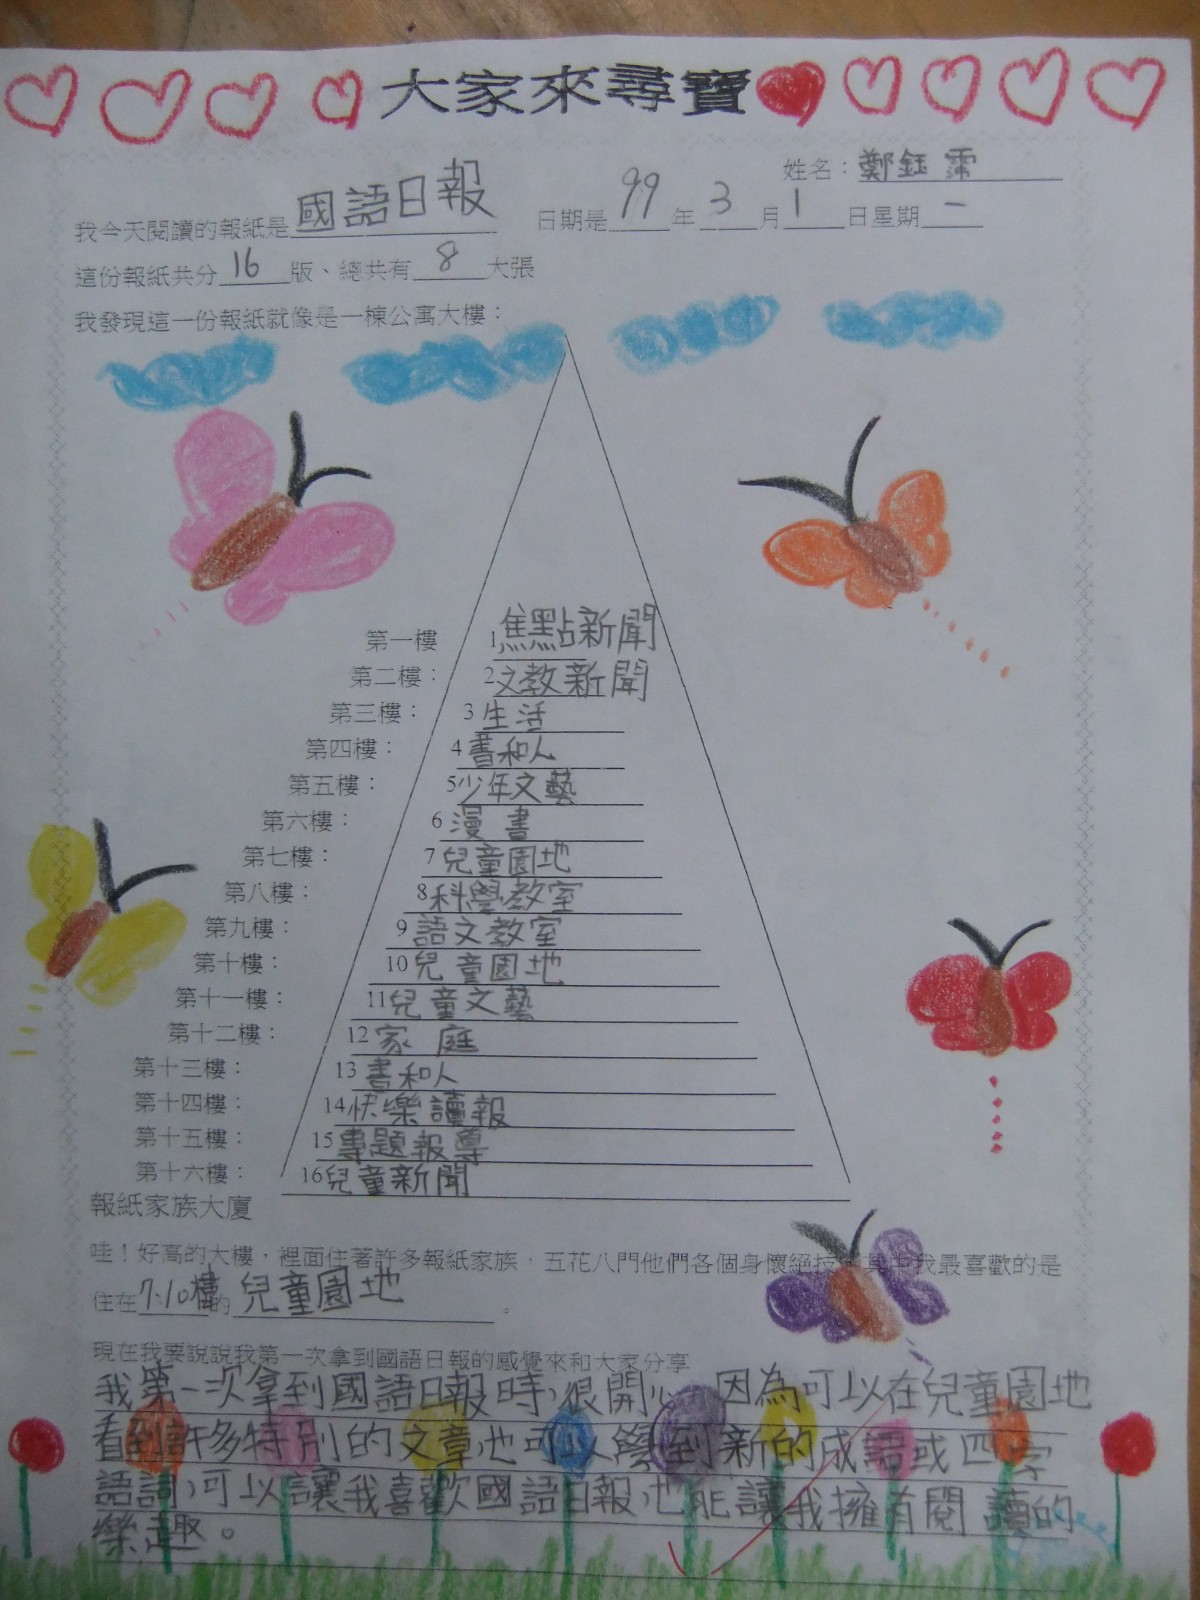 大家來尋寶
姓名：鄭鈺霈
我今天閱讀的報紙是國語日報 日期是99年3月1日星期一
這份報紙共分16版、總共有8大張
我發現這一份報紙就像是一棟公寓大樓：
第一樓 1焦點新聞
第二樓： 2文教新聞
第三樓： 3生活
第四樓： 4書和人
第五樓： 5少年文藝
第六樓： 6漫書
第七樓： 7兒童園地
第八樓： 8科學教室
第九樓： 9語文教室
第十樓： 10兒童園地
第十一樓： 11兒童文藝
第十二樓： 12家庭
第十三樓： 13書和人
第十四樓： 14快樂讀報
第十五樓： 15專題報導
第十六樓： 16兒童新聞
報紙家族大廈
哇！好高的大樓，裡面住著許多報紙家族，五花八門他們各個身懷絕技，其中我最喜歡的是
住在7.10樓的兒童園地。
現在我要說說我第一次拿到國語日報的感覺來和大家分享
我第一次拿到國語日報時，很開心，因為可以在兒童園地
看到許多特別的文章，也可以學到新的成語或四字
語詞，可以讓我喜歡國語日報，也能讓我擁有閱讀的
樂趣。